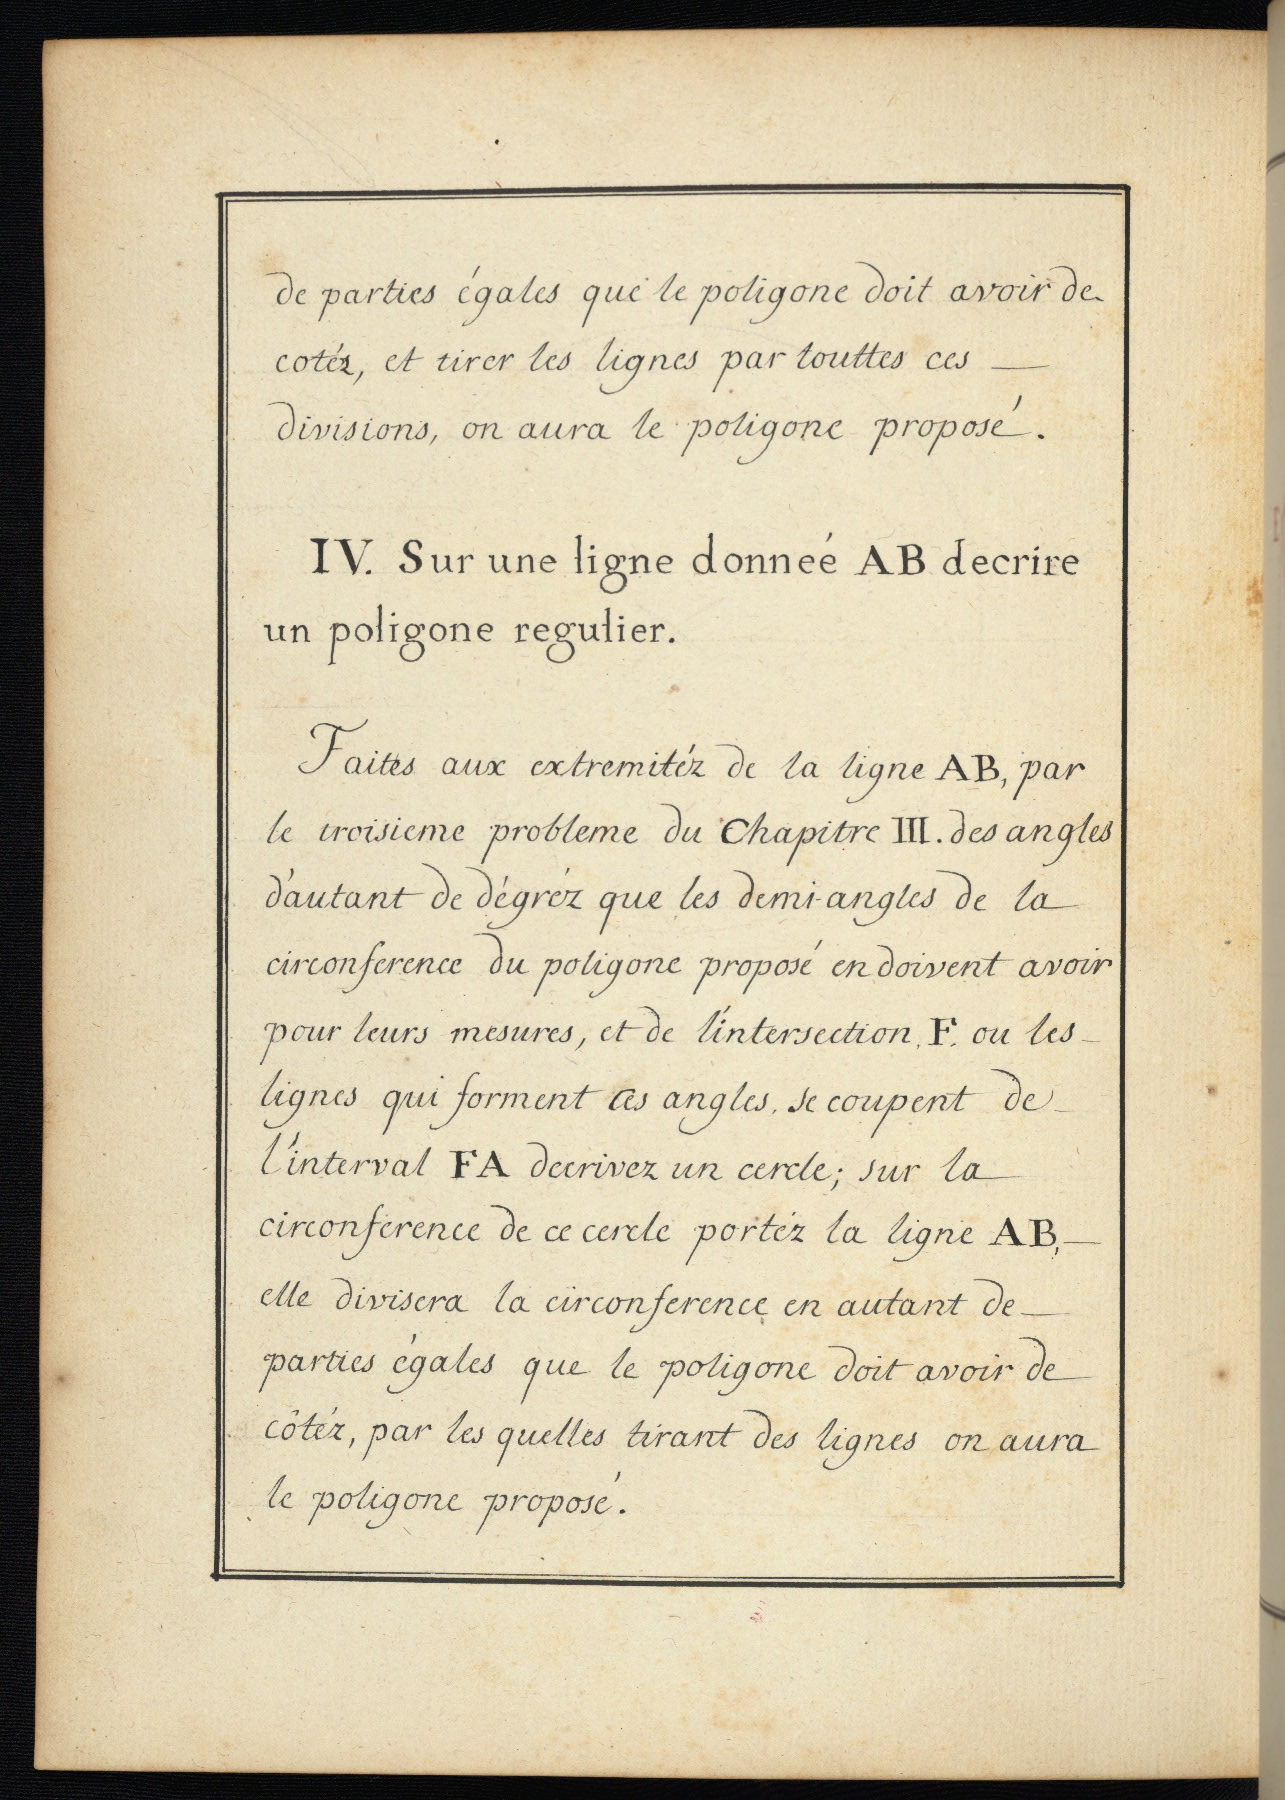 de parties égales que le poligone doit avoir de
cotéz, et tirer les lignes par touttes ces —
divisions, on aura le poligone proposé.
IV. Sur une ligne donneé AB decrire
un poligone regulier.
Faites aux extremitéz de la ligne AB, par
le troisieme probleme du Chapitre III. des angles
d'autant de dégréz que les demi-angles de la
circonference du poligone proposé en doivent avoir
pour leurs mesures, et de l'intersection F. ou les
lignes qui forment ces angles, se coupent de
l'interval FA decrivez un cercle; sur la
circonference de ce cercle portéz la ligne AB, —
elle divisera la circonference en autant de —
parties égales que le poligone doit avoir de
côtéz, par les quelles tirant des lignes on aura
le poligone proposé.